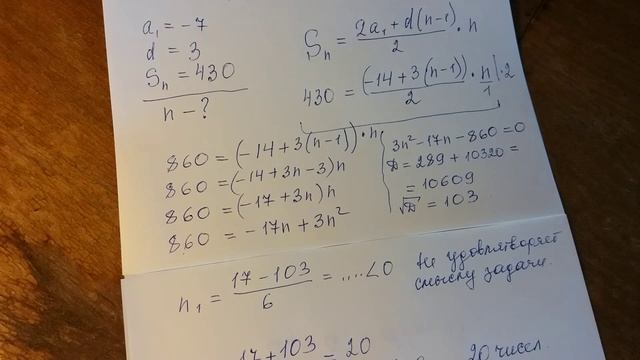 a₁ = -7
d = 3
Sₙ = 430
n - ?
Sₙ = (2a₁ + d(n-1))/2 · n
430 = (-14 + 3(n-1))/2 · n/1 | · 2
860 = (-14 + 3(n-1)) · n
860 = (-14 + 3n - 3)n
860 = (-17 + 3n)n
860 = -17n + 3n²
3n² - 17n - 860 = 0
D = 289 + 10320 =
= 10609
√D = 103
n₁ = (17 - 103)/6 = .... < 0
не удовлетворяет
смыслу задачи.
17 + 103 = 20
20 чисел.